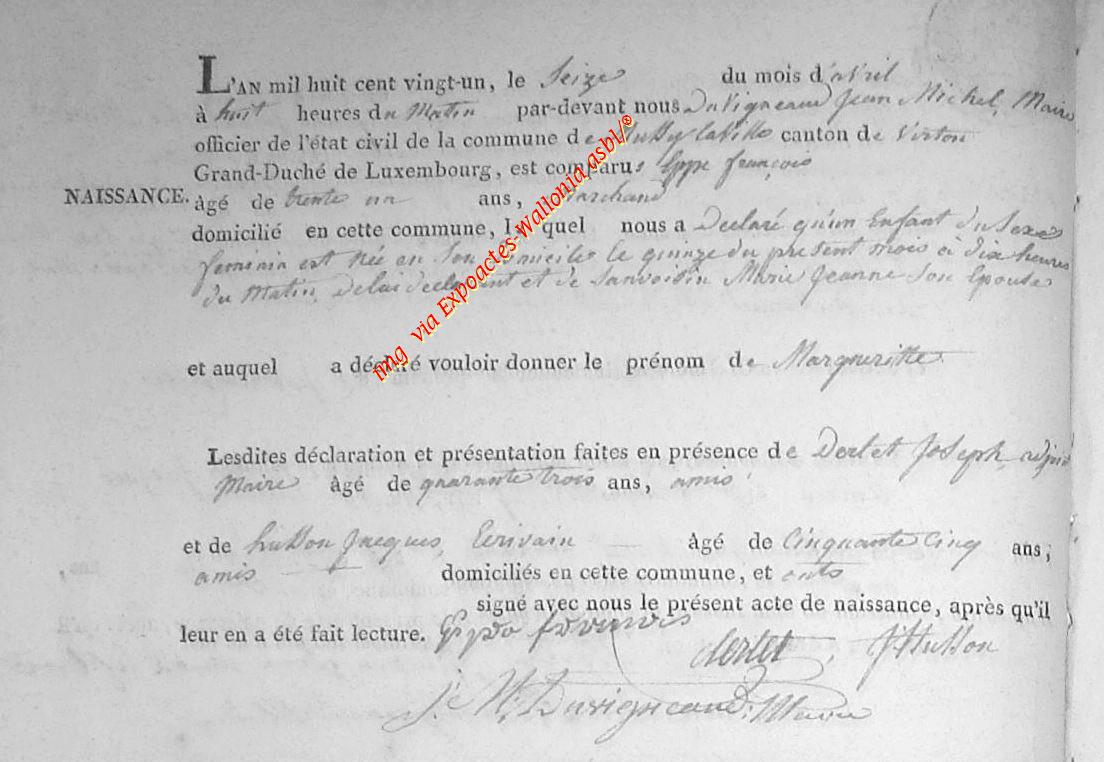 L'AN mil huit cent vingt-un, le Seize du mois d'avril
à huit heures du Matin par-devant nous Duvigneaud Jean Michel, Maire
officier de l'état civil de la commune de Mussy laville canton de Virton
Grand-Duché de Luxembourg, est comparus Eppe françois
NAISSANCE. âgé de trente un ans, Marchand
domicilié en cette commune, lequel nous a Declaré qu'un Enfant du Sexe
feminin est Née en Son Domicile le quinze du present mois à dix heures
du Matin, Delui declarant et de Sanvoisin Marie Jeanne Son Epouse
et auquel a déclaré vouloir donner le prénom de Margueritte
Lesdites déclaration et présentation faites en présence de Dertet Joseph, adjoint
Maire âgé de quarante trois ans, amis
et de husson Jacques, Ecrivain âgé de Cinquante Cinq ans,
amis domiciliés en cette commune, et onts
signé avec nous le présent acte de naissance, après qu'il
leur en a été fait lecture. Eppe françois
dertet, J Husson
J. M. Duvigneaud, Maire
mg via Expoactes-Wallonia asbl/®